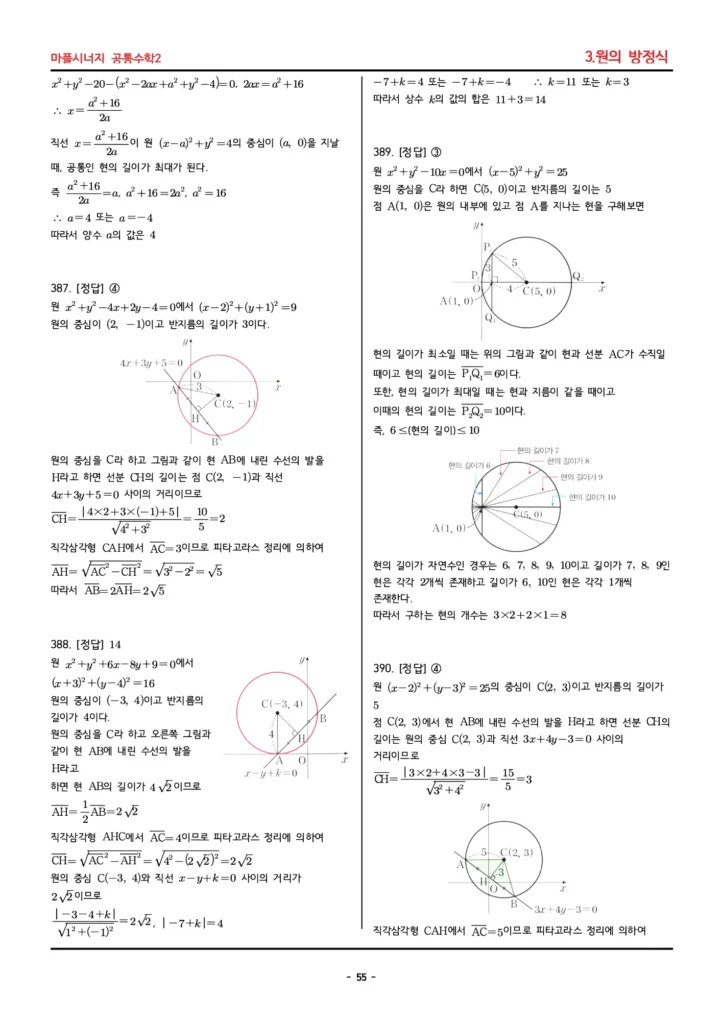 마플시너지 공통수학2
3.원의 방정식
x²+y²-20-(x²-2ax+a²+y²-4)=0, 2ax=a²+16
∴ x=(a²+16)/2a
직선 x=(a²+16)/2a이 원 (x-a)²+y²=4의 중심이 (a, 0)을 지날
때, 공통인 현의 길이가 최대가 된다.
즉 (a²+16)/2a=a, a²+16=2a², a²=16
∴ a=4 또는 a=-4
따라서 양수 a의 값은 4
387. [정답] ④
원 x²+y²-4x+2y-4=0에서 (x-2)²+(y+1)²=9
원의 중심이 (2, -1)이고 반지름의 길이가 3이다.
y
4x+3y+5=0
O
A
3
x
C(2, -1)
H
B
원의 중심을 C라 하고 그림과 같이 현 AB에 내린 수선의 발을
H라고 하면 선분 CH의 길이는 점 C(2, -1)과 직선
4x+3y+5=0 사이의 거리이므로
CH=|4×2+3×(-1)+5|/√(4²+3²)=10/5=2
직각삼각형 CAH에서 AC=3이므로 피타고라스 정리에 의하여
AH=√(AC²-CH²)=√(3²-2²)=√5
따라서 AB=2AH=2√5
388. [정답] 14
원 x²+y²+6x-8y+9=0에서
(x+3)²+(y-4)²=16
원의 중심이 (-3, 4)이고 반지름의
길이가 4이다.
원의 중심을 C라 하고 오른쪽 그림과
같이 현 AB에 내린 수선의 발을
H라고
하면 현 AB의 길이가 4√2이므로
y
C(-3, 4)
B
4
H
A
O
x
x-y+k=0
AH=1/2AB=2√2
직각삼각형 AHC에서 AC=4이므로 피타고라스 정리에 의하여
CH=√(AC²-AH²)=√(4²-(2√2)²)=2√2
원의 중심 C(-3, 4)와 직선 x-y+k=0 사이의 거리가
2√2이므로
|-3-4+k|/√(1²+(-1)²)=2√2, |-7+k|=4
-7+k=4 또는 -7+k=-4 ∴ k=11 또는 k=3
따라서 상수 k의 값의 합은 11+3=14
389. [정답] ③
원 x²+y²-10x=0에서 (x-5)²+y²=25
원의 중심을 C라 하면 C(5, 0)이고 반지름의 길이는 5
점 A(1, 0)은 원의 내부에 있고 점 A를 지나는 현을 구해보면
y
P₁
5
3
P₂
Q₂
O
4
C(5, 0)
x
A(1, 0)
Q₁
현의 길이가 최소일 때는 위의 그림과 같이 현과 선분 AC가 수직일
때이고 현의 길이는 P₁Q₁=6이다.
또한, 현의 길이가 최대일 때는 현과 지름이 같을 때이고
이때의 현의 길이는 P₂Q₂=10이다.
즉, 6≤(현의 길이)≤10
현의 길이가 7
현의 길이가 6
현의 길이가 8
현의 길이가 9
현의 길이가 10
C(5, 0)
A(1, 0)
현의 길이가 자연수인 경우는 6, 7, 8, 9, 10이고 길이가 7, 8, 9인
현은 각각 2개씩 존재하고 길이가 6, 10인 현은 각각 1개씩
존재한다.
따라서 구하는 현의 개수는 3×2+2×1=8
390. [정답] ④
원 (x-2)²+(y-3)²=25의 중심이 C(2, 3)이고 반지름의 길이가
5
점 C(2, 3)에서 현 AB에 내린 수선의 발을 H라고 하면 선분 CH의
길이는 원의 중심 C(2, 3)과 직선 3x+4y-3=0 사이의
거리이므로
CH=|3×2+4×3-3|/√(3²+4²)=15/5=3
y
5
C(2, 3)
A
3
H
O
x
B
3x+4y-3=0
직각삼각형 CAH에서 AC=5이므로 피타고라스 정리에 의하여
- 55 -